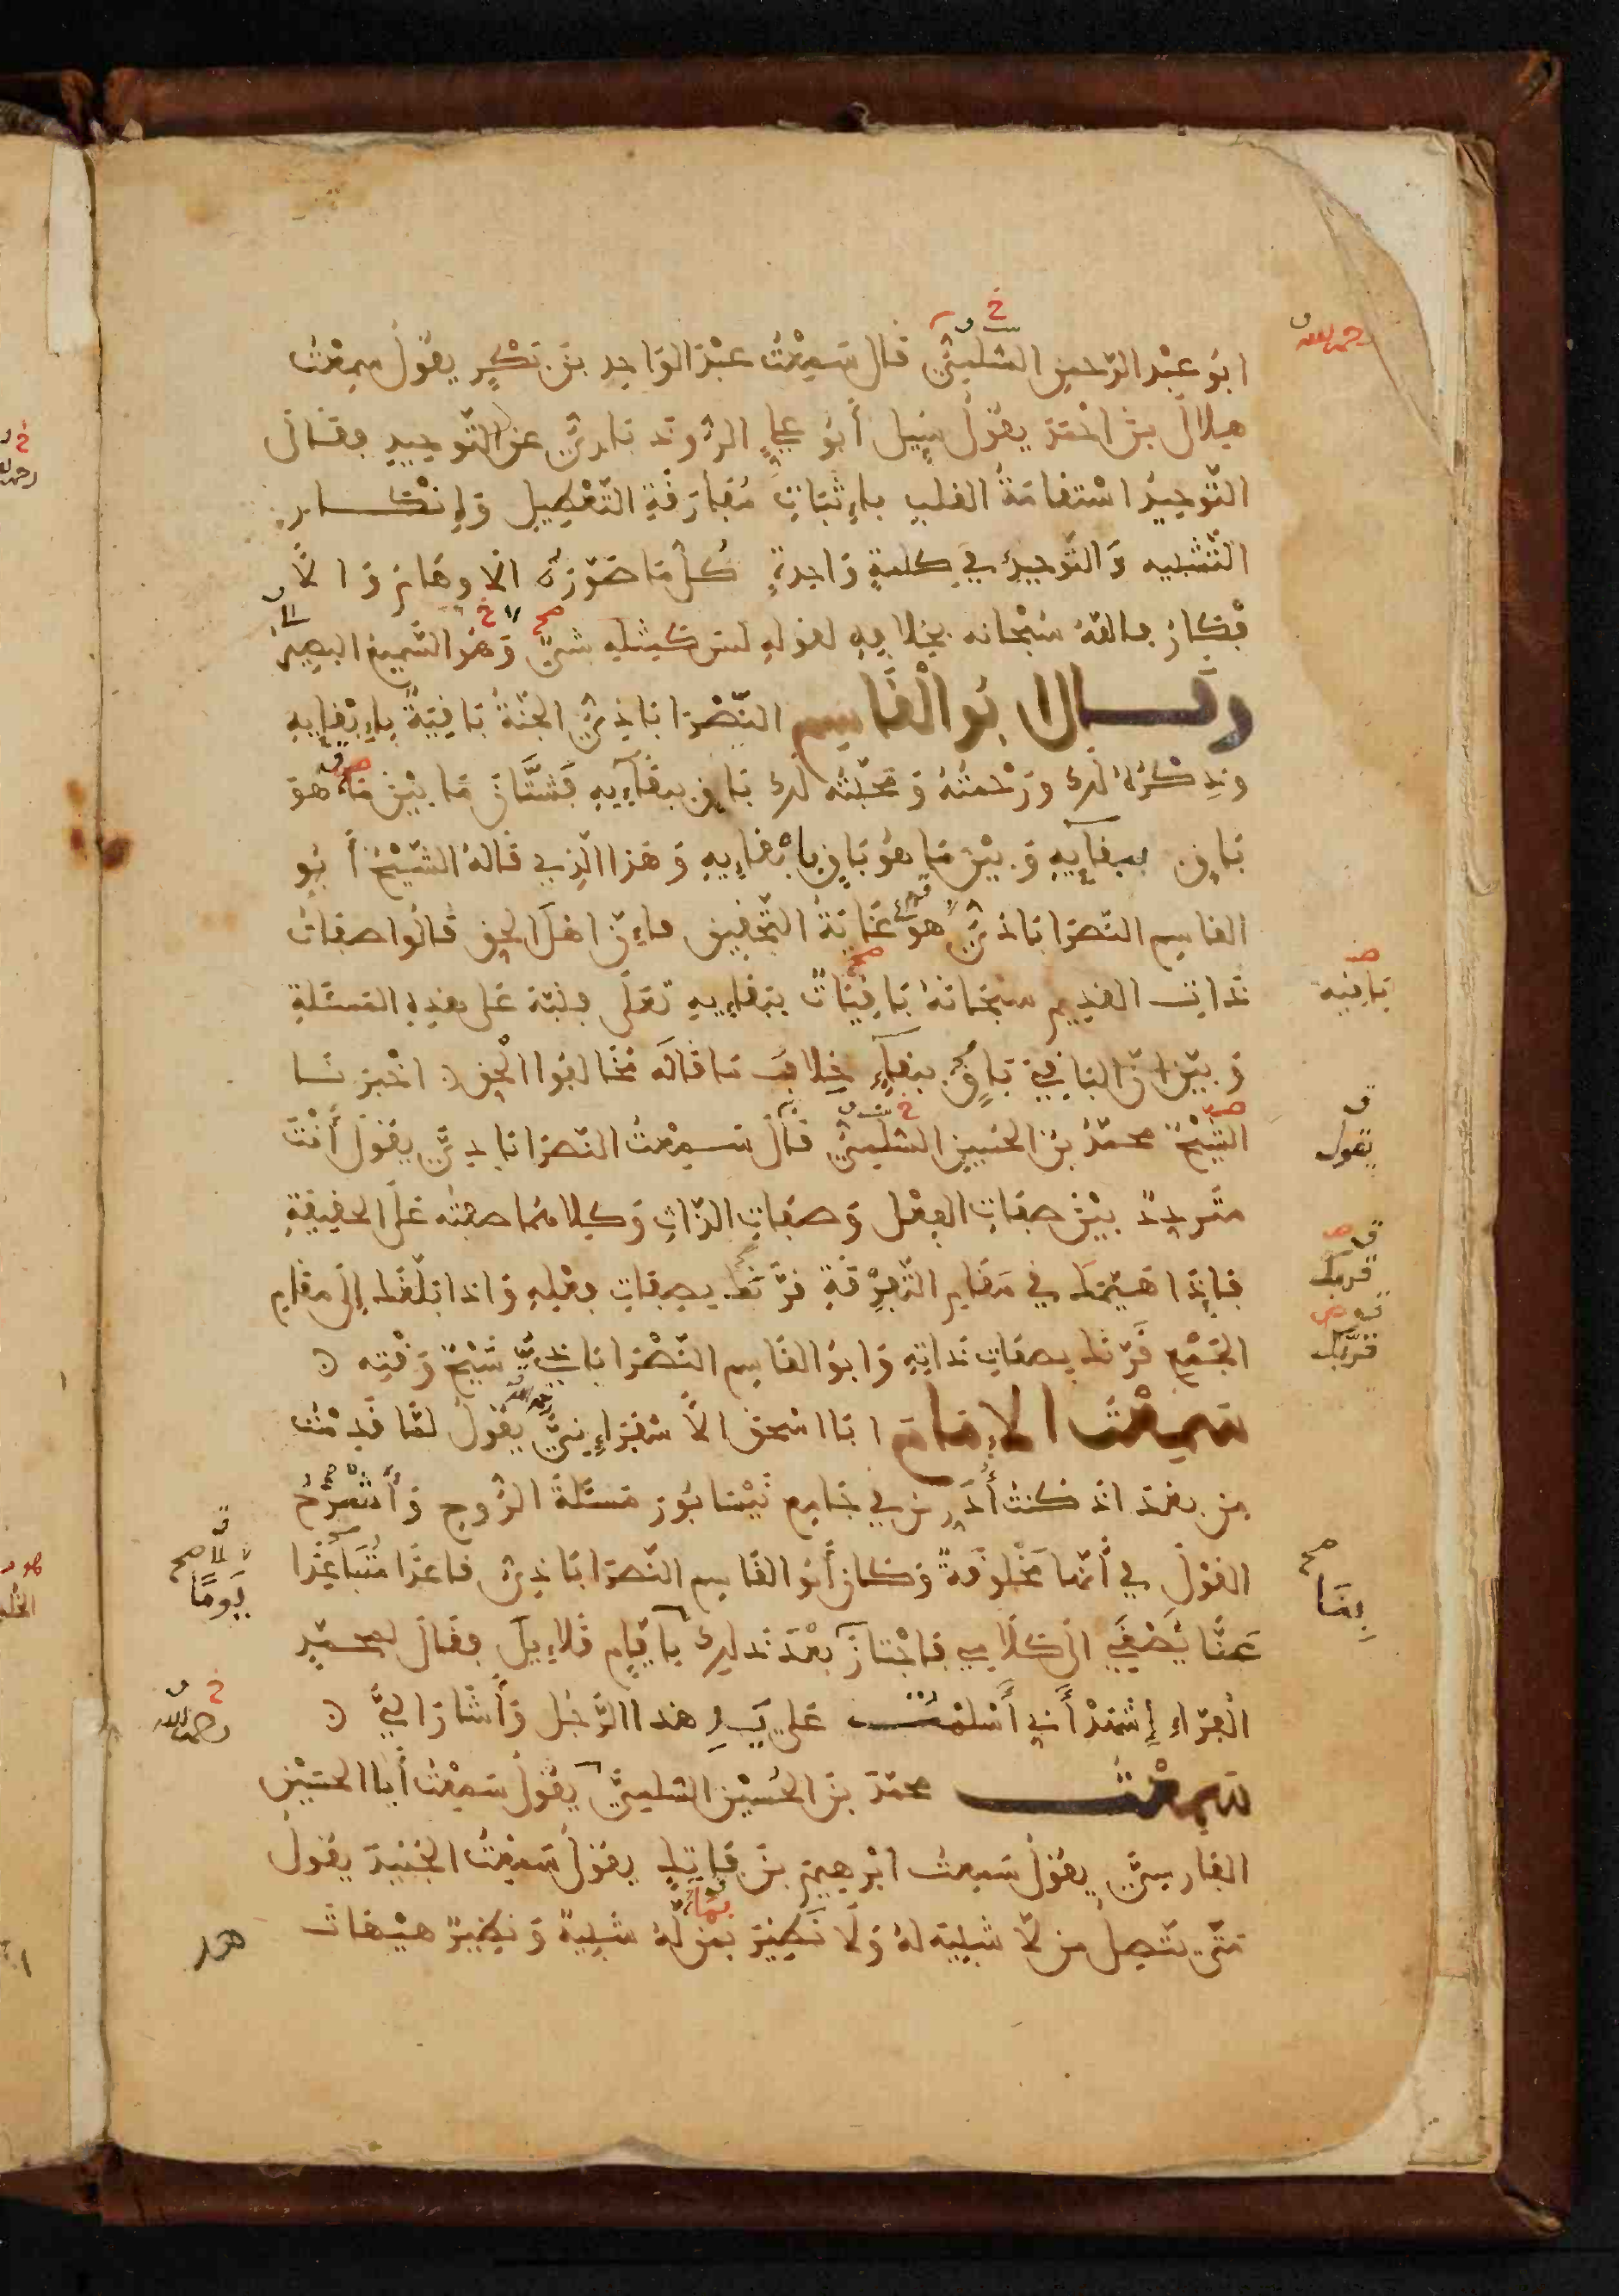 ابو عبد الرحمن السلمي قال سمعت عبد الواحد بن بكر يقول سمعت
هلال بن احمد يقول سيل أبو علي الروذباري عن التوحيد فقال
التوحيد استقامة القلب بإثبات مفارقة التعطيل وإنكار
التشبيه والتوحيد في كلمة واحدة كل ما صوره الاوهام والأ
فكار فالله سبحانه بخلافه لقوله ليس كمثله شيء وهو السميع البصير
وقال بو القاسم النصراباذي الجنة باقية بإبقايه
وذكره لك ورحمته ومحبته لك باق ببقايه فشتان ما بين ما هو
باق ببقايه وبين ما هو باق بإبقايه وهذا الذي قاله الشيخ أبو
القاسم النصراباذي هو غاية التحقيق فإن اهل الحق قالوا صفات
ذات القديم سبحانه باقيات ببقايه تعلى فنبه على هذه المسئلة
وبين ان الباقي باق ببقاء خلاف ما قاله مخالفوا الحق اخبرنا
الشيخ محمد بن الحسين السلمي قال سمعت النصراباذي يقول أنت
متردد بين صفات الفعل وصفات الذات وكلاهما صفته على الحقيقة
فإذا هيمك في مقام التفرقة قرنك بصفات فعله واذا بلغك إلى مقام
الجمع قرنك بصفات ذاته وابو القاسم النصراباذي شيخ وقته
سمعت الإمام ابا اسحق الأسفرايني يقول لما قدمت
من بغداد كنت أدرس في جامع نيسابور مسئلة الروح وأشرح
القول في أنها مخلوقة وكان أبو القاسم النصراباذي قاعدا متباعدا
عنا يصغي الى كلامي فاجتاز بعد ذلك بأيام قلايل فقال لمحمد
الفراء إشهد أني أسلمت على يد هذا الرجل وأشار الي
سمعت محمد بن الحسين السلمي يقول سمعت أبا الحسين
الفارسي يقول سمعت ابرهيم بن فاتك يقول سمعت الجنيد يقول
متى يتصل من لا شبيه له ولا نظير بمن له شبيه ونظير هيهات
رحمه الله
باقية
يقول
قربك
قربك
بها
يوما
رحمه الله